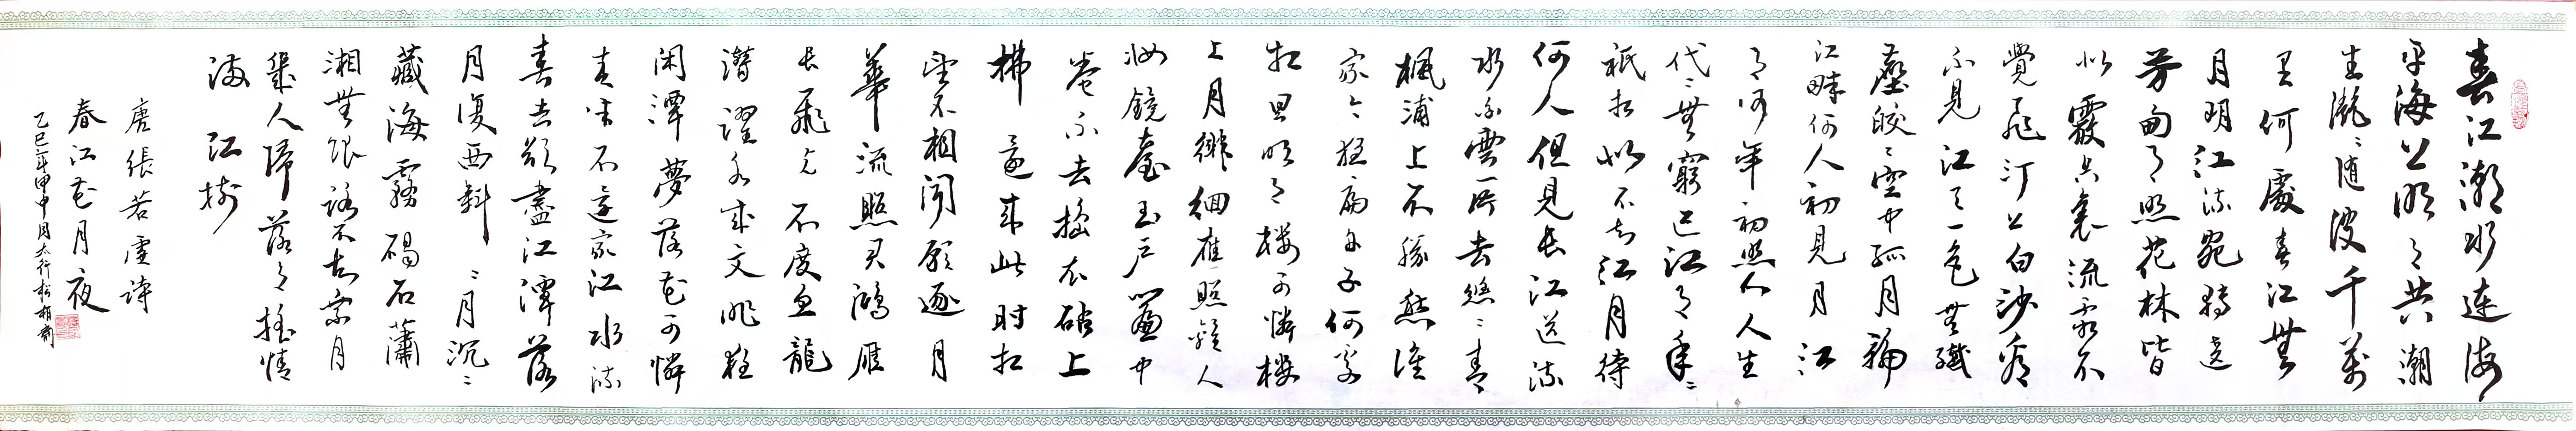 春江潮水連海
平海上明月共潮
生灧〻隨波千萬
里何處春江無
月明江流宛轉遶
芳甸月照花林皆
似霰空裏流霜不
覺飛汀上白沙看
不見江天一色無纖
塵皎〻空中孤月輪
江畔何人初見月江
月何年初照人人生
代〻無窮已江月年〻
祇相似不知江月待
何人但見長江送流
水白雲一片去悠〻青
楓浦上不勝愁誰
家今夜扁舟子何處
相思明月樓可憐樓
上月徘徊應照離人
妝鏡臺玉戶簾中
卷不去擣衣砧上
拂還來此時相
望不相聞願逐月
華流照君鴻雁
長飛光不度魚龍
潛躍水成文昨夜
閑潭夢落花可憐
春半不還家江水流
春去欲盡江潭落
月復西斜〻月沉〻
藏海霧碣石瀟
湘無限路不知乘月
幾人歸落月搖情
滿江樹
唐張若虛詩
春江花月夜
乙巳年甲申月太行松